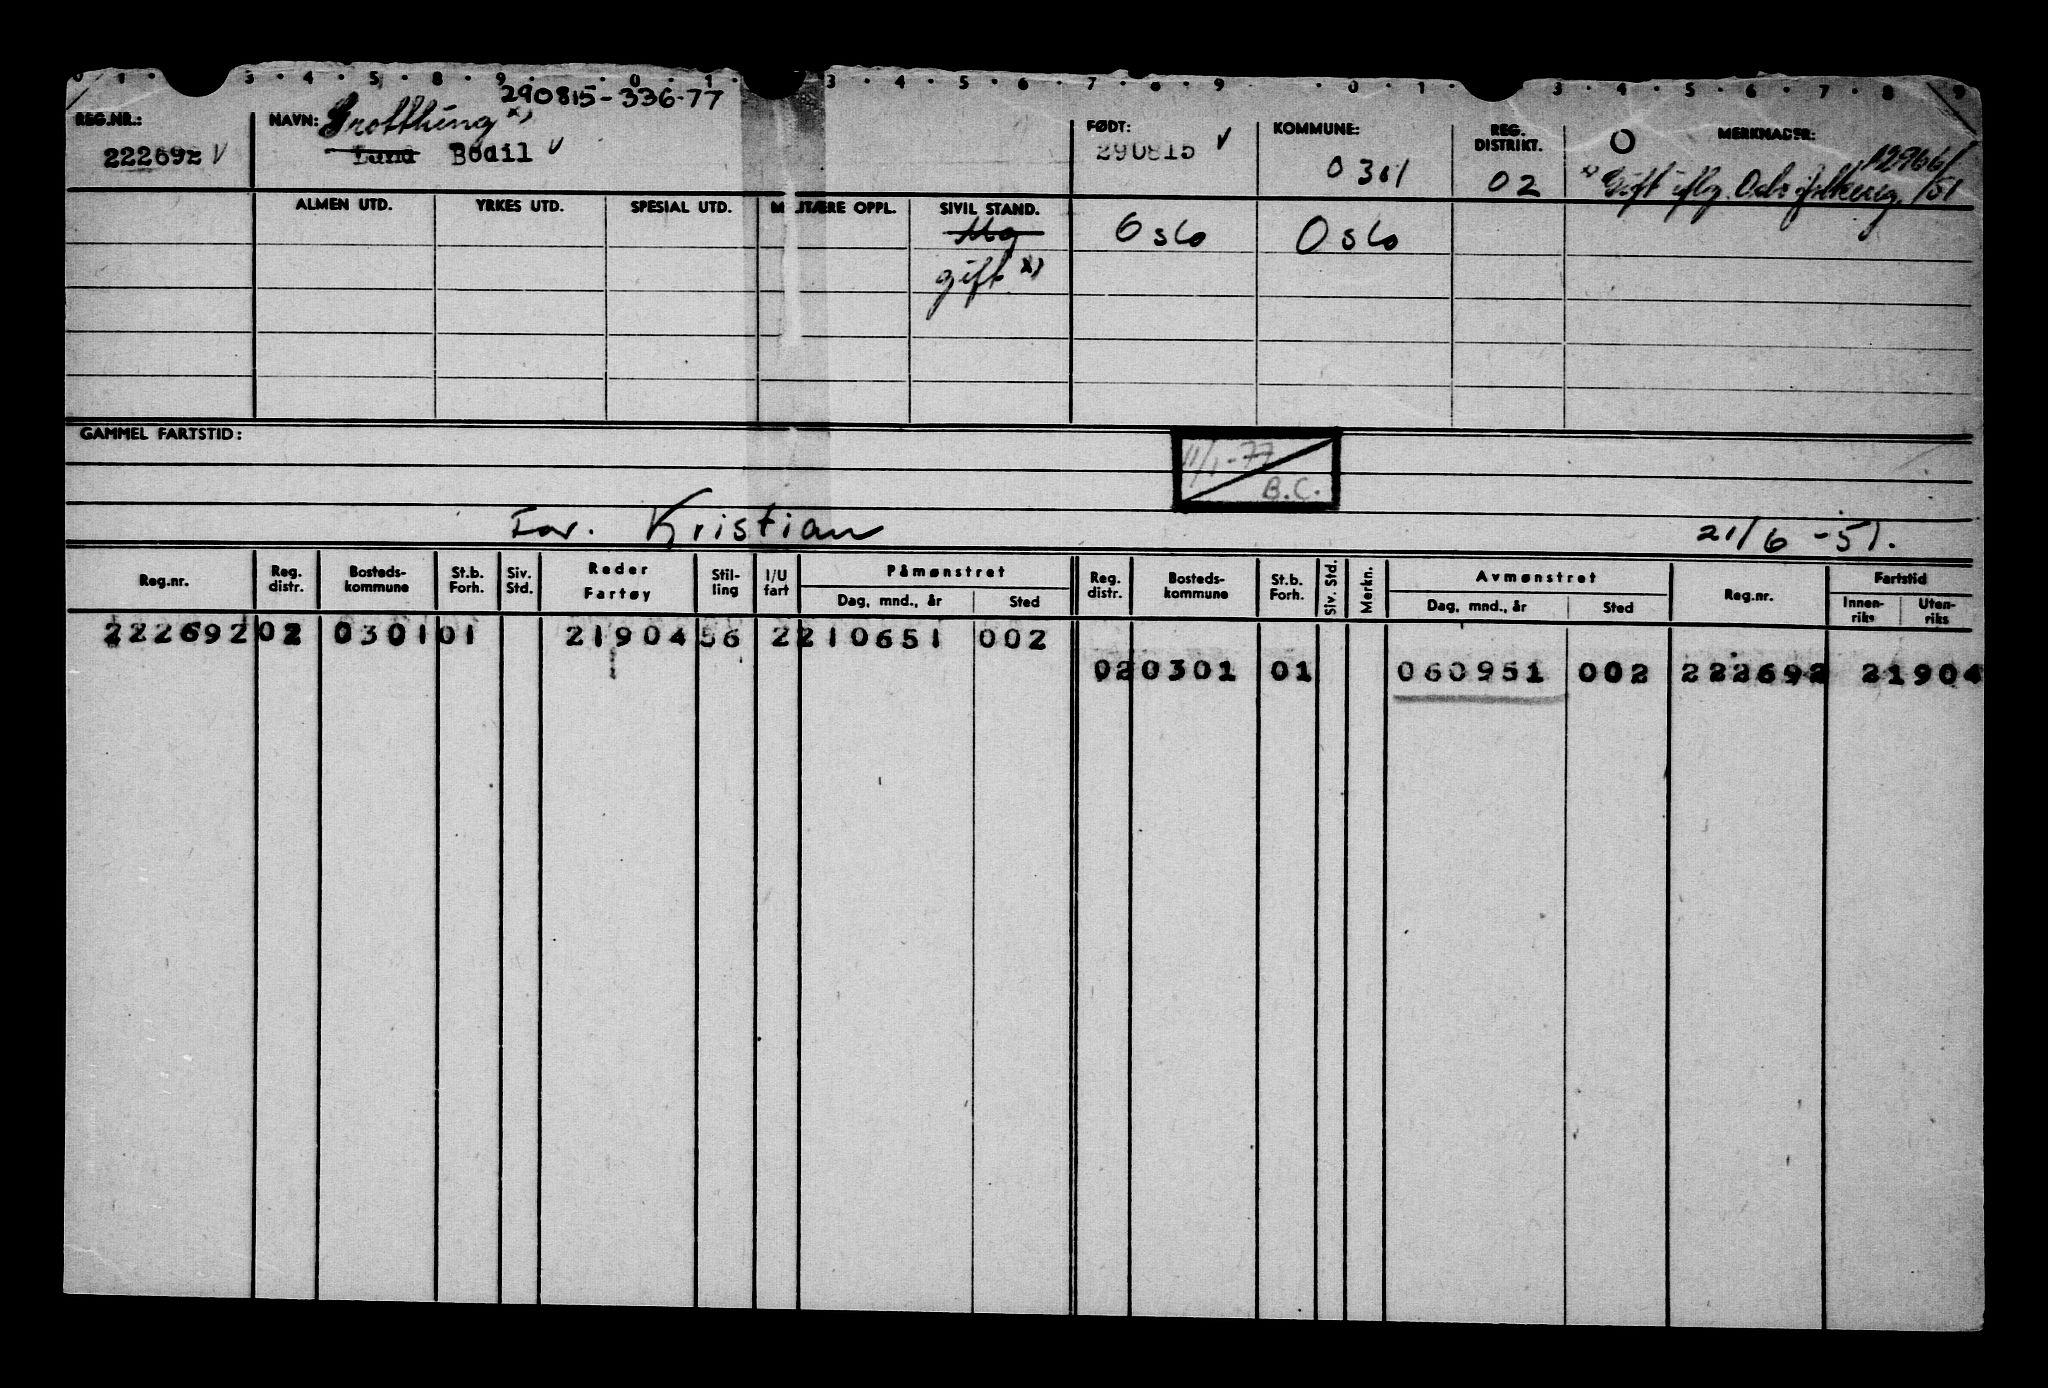 0 1 · 3 · 4 · 5 · 8 · 9 · · 0 · 1 · 3 · 4 · 5 · 6 · 7 · 8 · 9 · 0 · 1 · 3 · 4 · 5 · 6 · 7 · 8 · 9
290815-336-77
REG.NR.: NAVN: Grotthing x) FØDT: KOMMUNE: REG. DISTRIKT. MERKNADER:
222692 V Lund Bodil V 290815 V 0301 02 x) Gift iflg. Oslo 12966/51
ALMEN UTD. YRKES UTD. SPESIAL UTD. MILITÆRE OPPL. SIVIL STAND.
Ug Oslo Oslo
gift x)
GAMMEL FARTSTID:
11/1-77
B.C.
For. Kristian 21/6-51.
Reg.nr. Reg. distr. Bosteds-kommune St.b. Forh. Siv. Std. Reder Fartøy Stil-ling I/U fart Påmønstret Dag, mnd., år Sted Reg. distr. Bosteds-kommune St.b. Forh. Siv. Std. Merkn. Avmønstret Dag, mnd., år Sted Reg.nr. Fartstid Innen-riks Uten-riks
222692 02 0301 01 21904 56 2 210651 002
02 0301 01 060951 002 222692 21904